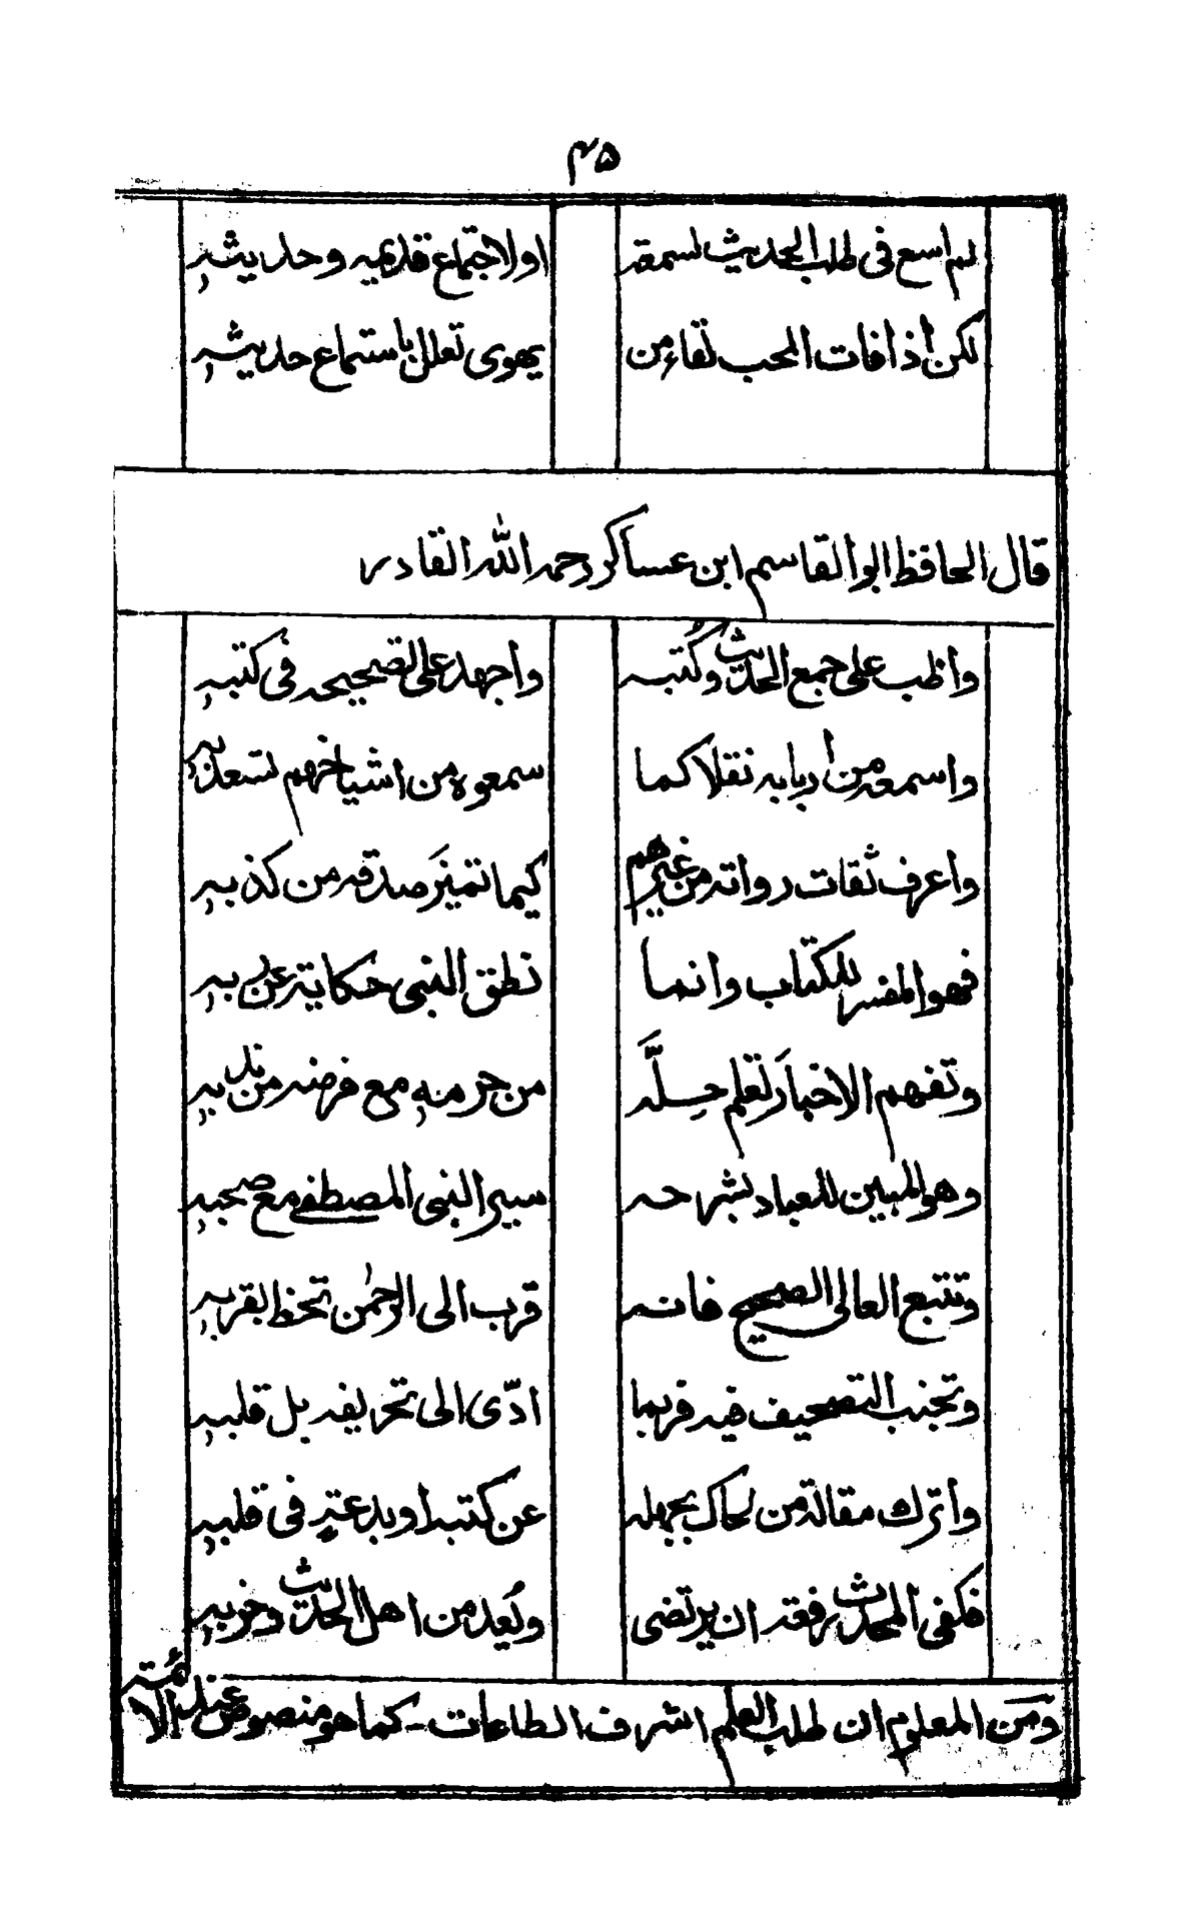 ۴۵
لم اسع فی طلب الحدیث لسمعة اولاجتماع قدیمه وحدیثهٖ
لکن أذا فات المحب لقاء من یهوی تعلل باستماع حدیثهٖ
قال الحافظ ابو القاسم ابن عساکر رحمه الله القادر
واظب علی جمع الحدیث وکُتبه واجهد علی تصحیحه فی کتبهٖ
واسمعه من أربابه نقلا کما سمعوه من اشیاخهم تسعد بهٖ
واعرف ثقات رواته من غیرهم کیما تمیزَ صدقه من کذبهٖ
فهو المفسر للکتاب وانما نطق النبی حکایة عن ربهٖ
وتفهم الاخبارَ تعلم حِلَّه من حرمهٖ مع فرضه من ندبهٖ
وهو المبین للعباد بشرحه سیر النبی المصطفی مع صحبهٖ
وتتبع العالی الصحیح فانه قرب الی الرحمٰن تحظ بقربهٖ
وتجنب التصحیف فیه فربما ادّی الی تحریفه بل قلبهٖ
واترك مقالة من لحاك بجهله عن کتبه او بدعتهٖ فی قلبهٖ
فکفی المحدث رفعة ان یرتضی ویُعد من اهل الحدیث وحزبهٖ
ومن المعلوم ان طلب العلم اشرف الطاعات - کما هو منصوص عند الائمة